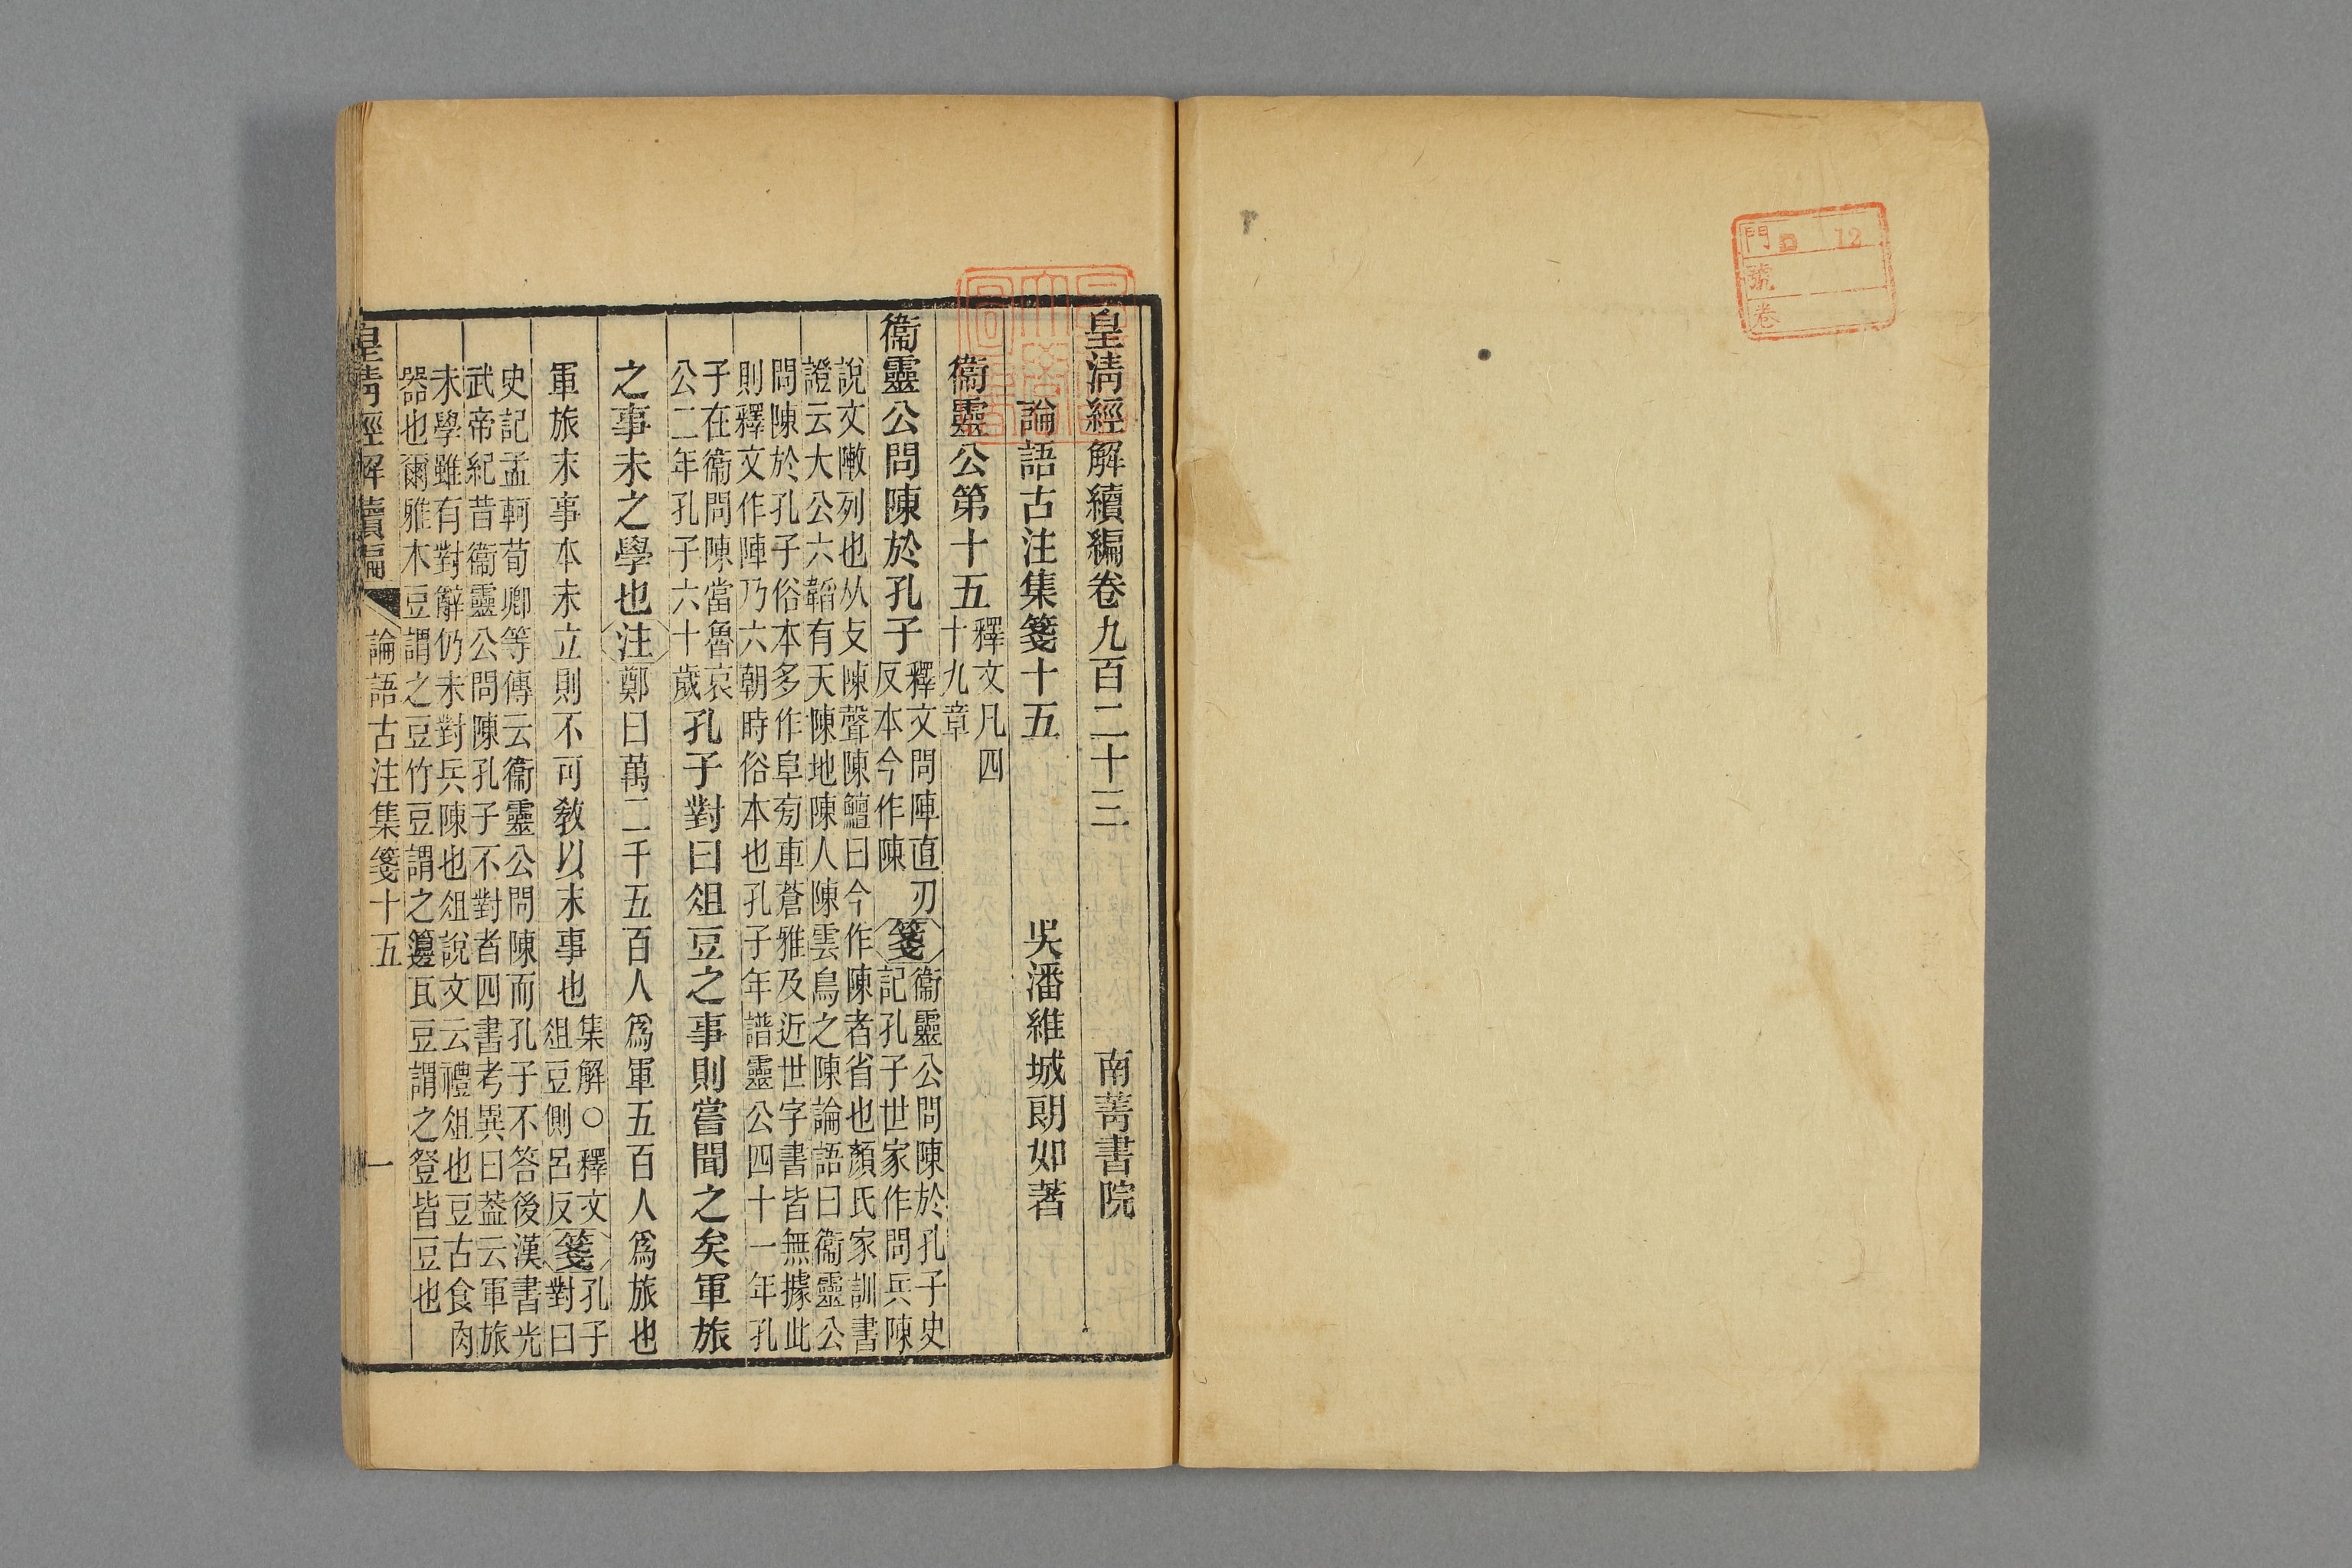 門 12
號
卷
皇清經解續編卷九百二十三 南菁書院
論語古注集箋十五 吳潘維城朗如著
衞靈公第十五
釋文凡四
十九章
衞靈公問陳於孔子
釋文問陣直刃
反本今作陳
箋
衞靈公問陳於孔子史
記孔子世家作問兵陳
說文敶列也从攴陳聲陳鱣曰今作陳者省也顏氏家訓書
證云大公六韜有天陳地陳人陳雲鳥之陳論語曰衞靈公
問陳於孔子俗本多作阜㫄車蒼雅及近世字書皆無據此
則釋文作陣乃六朝時俗本也孔子年譜靈公四十一年孔
子在衞問陳當魯哀
公二年孔子六十歲
孔子對曰俎豆之事則嘗聞之矣軍旅
之事未之學也注鄭曰萬二千五百人爲軍五百人爲旅也
軍旅末事本未立則不可敎以末事也
集解○釋文
俎豆側呂反
箋
孔子
對曰
史記孟軻荀卿等傳云衞靈公問陳而孔子不答後漢書光
武帝紀昔衞靈公問陳孔子不對者四書考異曰蓋云軍旅
未學雖有對辭仍未對兵陳也俎說文云禮俎也豆古食肉
器也爾雅木豆謂之豆竹豆謂之籩瓦豆謂之登皆豆也
皇清經解續編 論語古注集箋十五 一